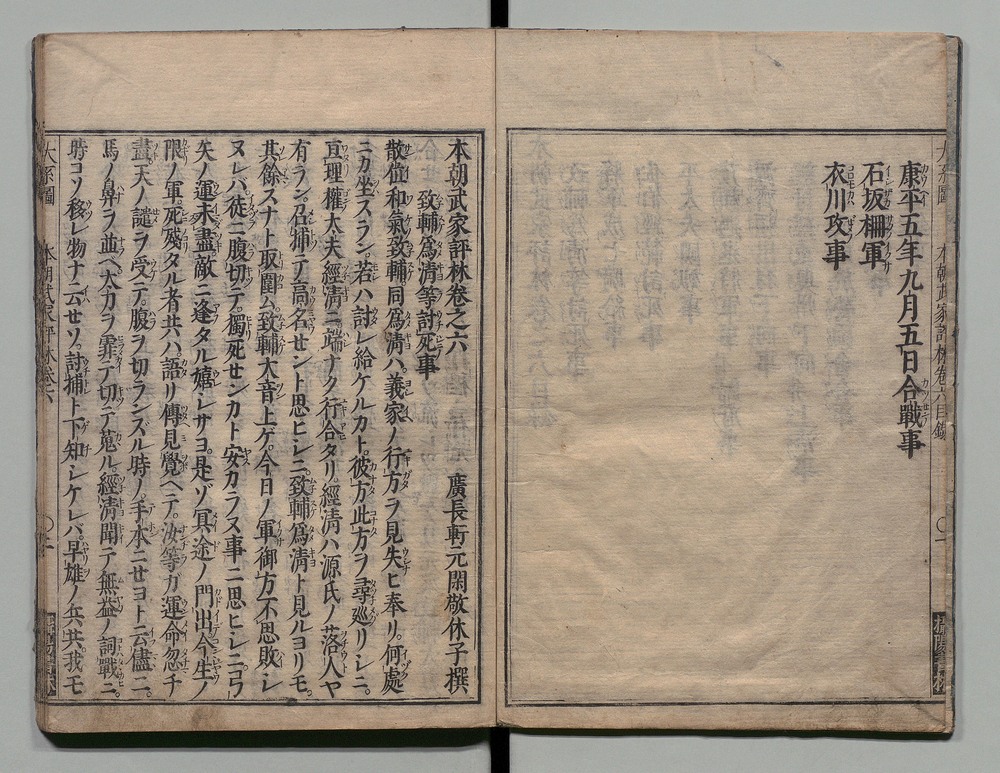 康平五年九月五日合戰事
石坂柵軍
衣川攻事
本朝武家評林卷之六　廣長軒元閑敬休子撰
致輔爲清等討死事
散位和氣致輔同爲清ハ義家ノ行方ヲ見失ヒ奉リ何處
ニカ坐スラン。若ハ討レ給ケルカト。彼方此方ヲ尋巡リシニ。
亘理權太夫經清ニ端ナク行合タリ。經清ハ源氏ノ落人ヤ
有ラン。召捕テ高名セント思ヒシニ。致輔爲清ト見ルヨリモ。
其餘スナト取圍ム。致輔大音上ケ。今日ノ軍御方不思敗シ
ヌレバ。徒ニ腹切テ。獨死センカト安カラヌ事ニ思ヒシニ。コラ
矢ノ運未盡敵ニ逢タル嬉シサヨ。是ゾ冥途ノ門出今生ノ
限ノ軍。死殘タル者共ハ。語リ傳見覺ヘテ。汝等ガ運命忽チ
盡。天ノ譴ヲ受テ。腹ヲ切ランズル時ノ。手本ニセヨト云儘ニ。
馬ノ鼻ヲ並ヘ太刀ヲ霏テ切テ蒐ル。經清聞テ無益ノ詞戰ニ。
時コソ移レ物ナ云セソ。討捕ト下知シケレバ。早雄ノ兵共我モ
大系圖　本朝武家評林卷六目録　〇一
大系圖　本朝武家評林卷六　〇一